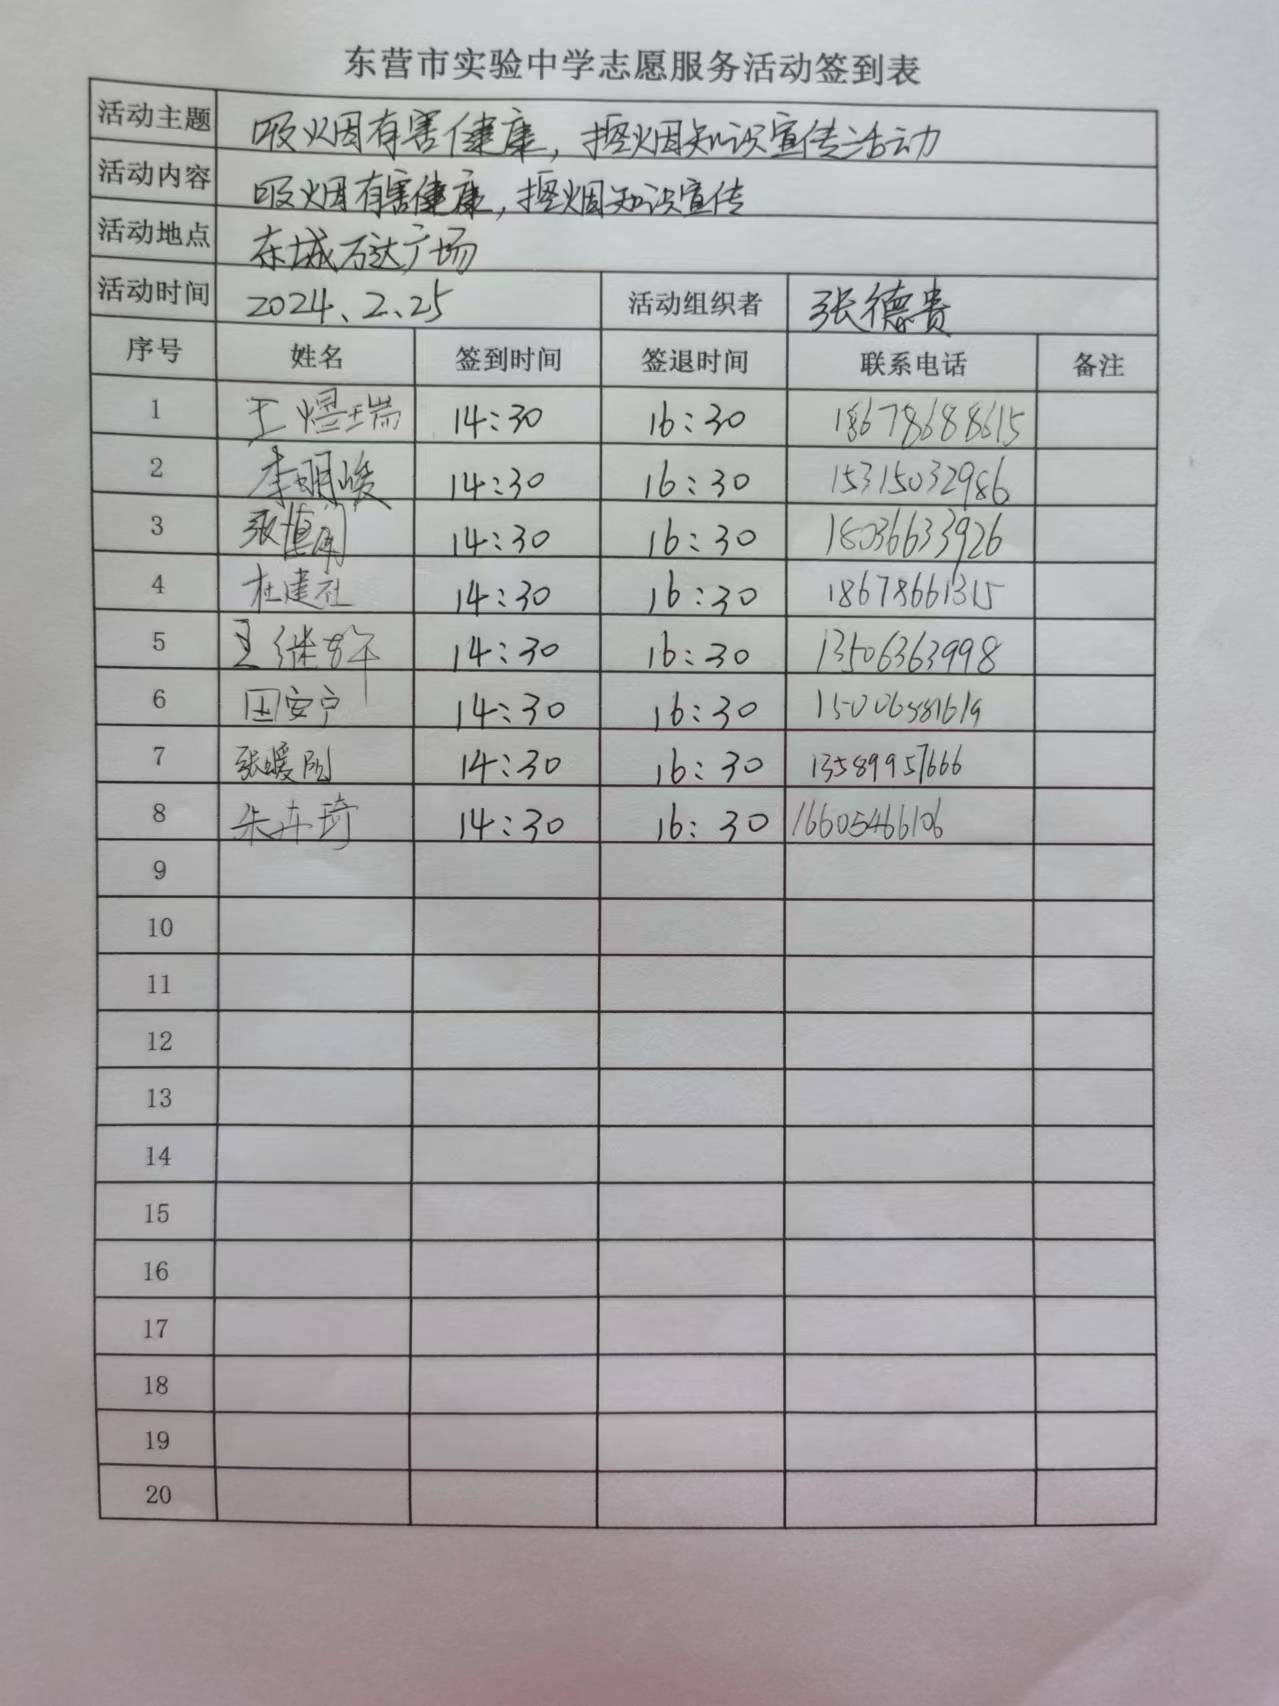 东营市实验中学志愿服务活动签到表
活动主题 吸烟有害健康，控烟知识宣传活动
活动内容 吸烟有害健康，控烟知识宣传
活动地点 东城万达广场
活动时间 2024、2、25 活动组织者 张德贵
序号 姓名 签到时间 签退时间 联系电话 备注
1 王煜瑞 14:30 16:30 18678688615
2 李明峻 14:30 16:30 15315032986
3 14:30 16:30 18036633926
4 杜建社 14:30 16:30 18678661315
5 14:30 16:30 13506363998
6 田安宁 14:30 16:30
7 张暖阳 14:30 16:30 13589957666
8 朱卉琦 14:30 16:30 16605466106
9
10
11
12
13
14
15
16
17
18
19
20